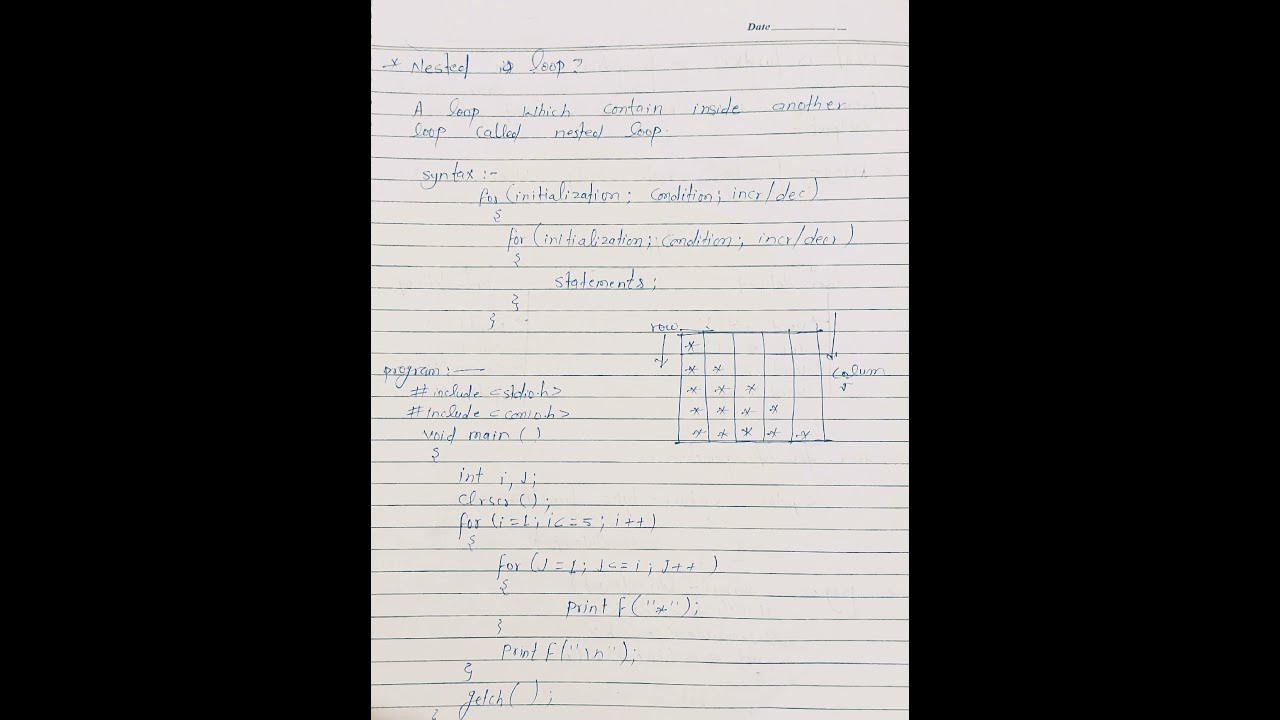 Date
* Nested loop?
A loop which contain inside another
loop called nested loop.
syntax :-
for (initialization; condition; incr/dec)
{
for (initialization; condition; incr/decr)
{
statements;
}
}
row
*
* *
* * *
* * * *
* * * * *
colum
program :—
# include <stdio.h>
# include <conio.h>
void main ()
{
int i, J;
clrscr ();
for (i=1; i<=5; i++)
{
for (J=1; J<=i; J++ )
{
print f("*");
}
print f("\n");
}
getch ( );
}